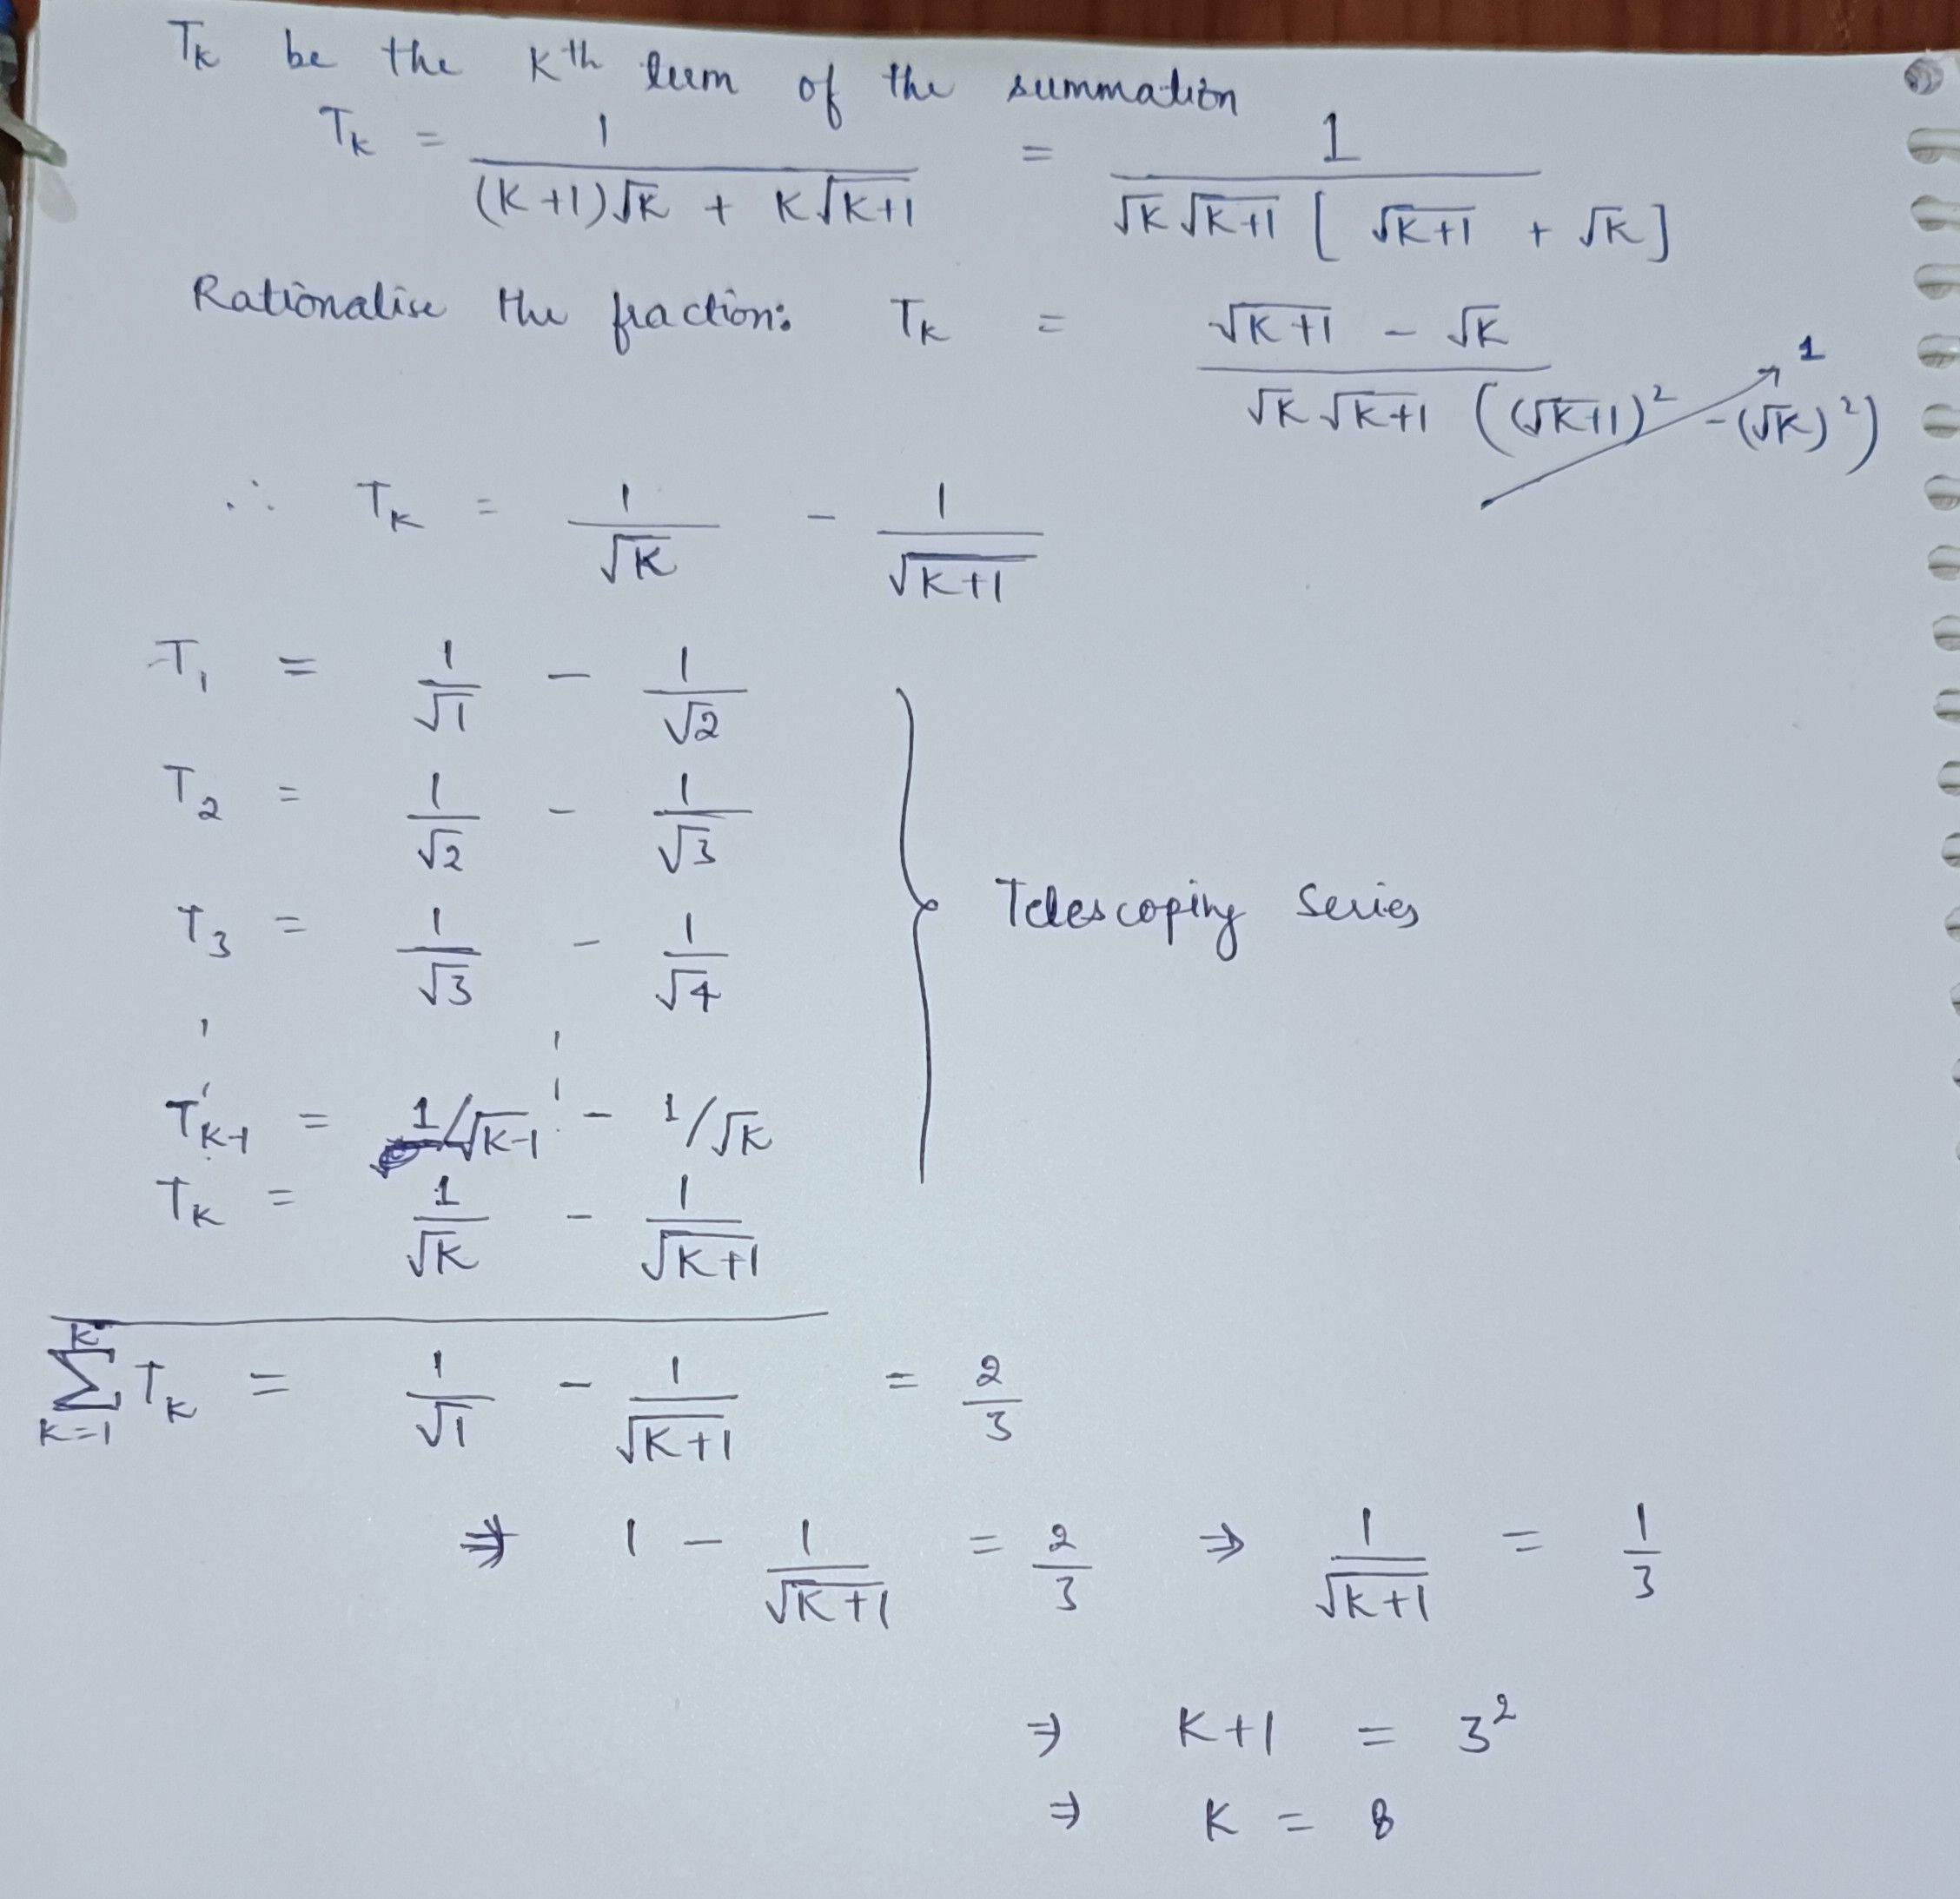 T_K be the Kth term of the summation
T_K = 1 / ((K+1)√K + K√(K+1)) = 1 / (√K √(K+1) [√(K+1) + √K])
Rationalise the fraction: T_K = (√(K+1) - √K) / (√K √(K+1) ((√(K+1))² - (√K)²)) 1
∴ T_K = 1/√K - 1/√(K+1)
T_1 = 1/√1 - 1/√2
T_2 = 1/√2 - 1/√3
T_3 = 1/√3 - 1/√4
Telescoping Series
T_K-1 = 1/√(K-1) - 1/√K
T_K = 1/√K - 1/√(K+1)
K Σ K=1 T_K = 1/√1 - 1/√(K+1) = 2/3
⇒ 1 - 1/√(K+1) = 2/3 ⇒ 1/√(K+1) = 1/3
⇒ K+1 = 3²
⇒ K = 8